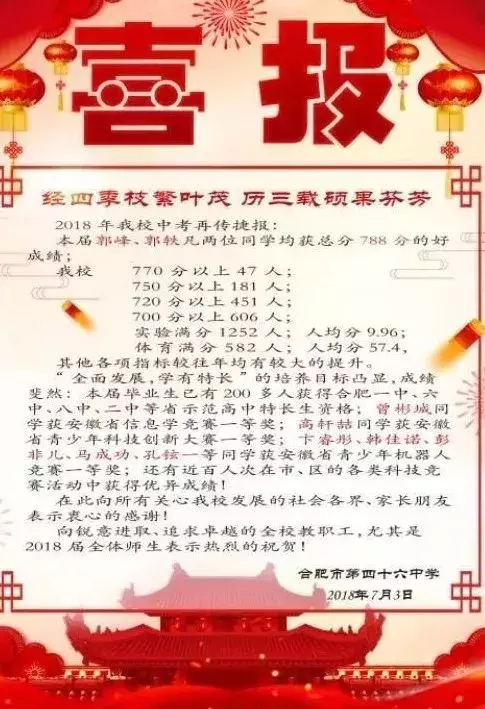 喜报
经四季枝繁叶茂 历三载硕果芬芳
2018年我校中考再传捷报:
本届郭峰、郭轶凡两位同学均获总分788分的好
成绩;
我校 770分以上47人;
750分以上181人;
720分以上451人;
700分以上606人;
实验满分1252人; 人均分9.96;
体育满分582人; 人均分57.4,
其他各项指标较往年均有较大的提升。
“全面发展,学有特长”的培养目标凸显,成绩
斐然: 本届毕业生已有200多人获得合肥一中、六
中、八中、二中等省示范高中特长生资格; 曾彬城同
学获安徽省信息学竞赛一等奖; 高轩喆同学获安徽
省青少年科技创新大赛一等奖; 卞睿彤、韩佳诺、彭
非儿、马成功、孔铉一等同学获安徽省青少年机器人
竞赛一等奖; 还有近百人次在市、区的各类科技竞
赛活动中获得优异成绩!
在此向所有关心我校发展的社会各界、家长朋友
表示衷心的感谢!
向锐意进取、追求卓越的全校教职工,尤其是
2018届全体师生表示热烈的祝贺!
合肥市第四十六中学
2018年7月3日